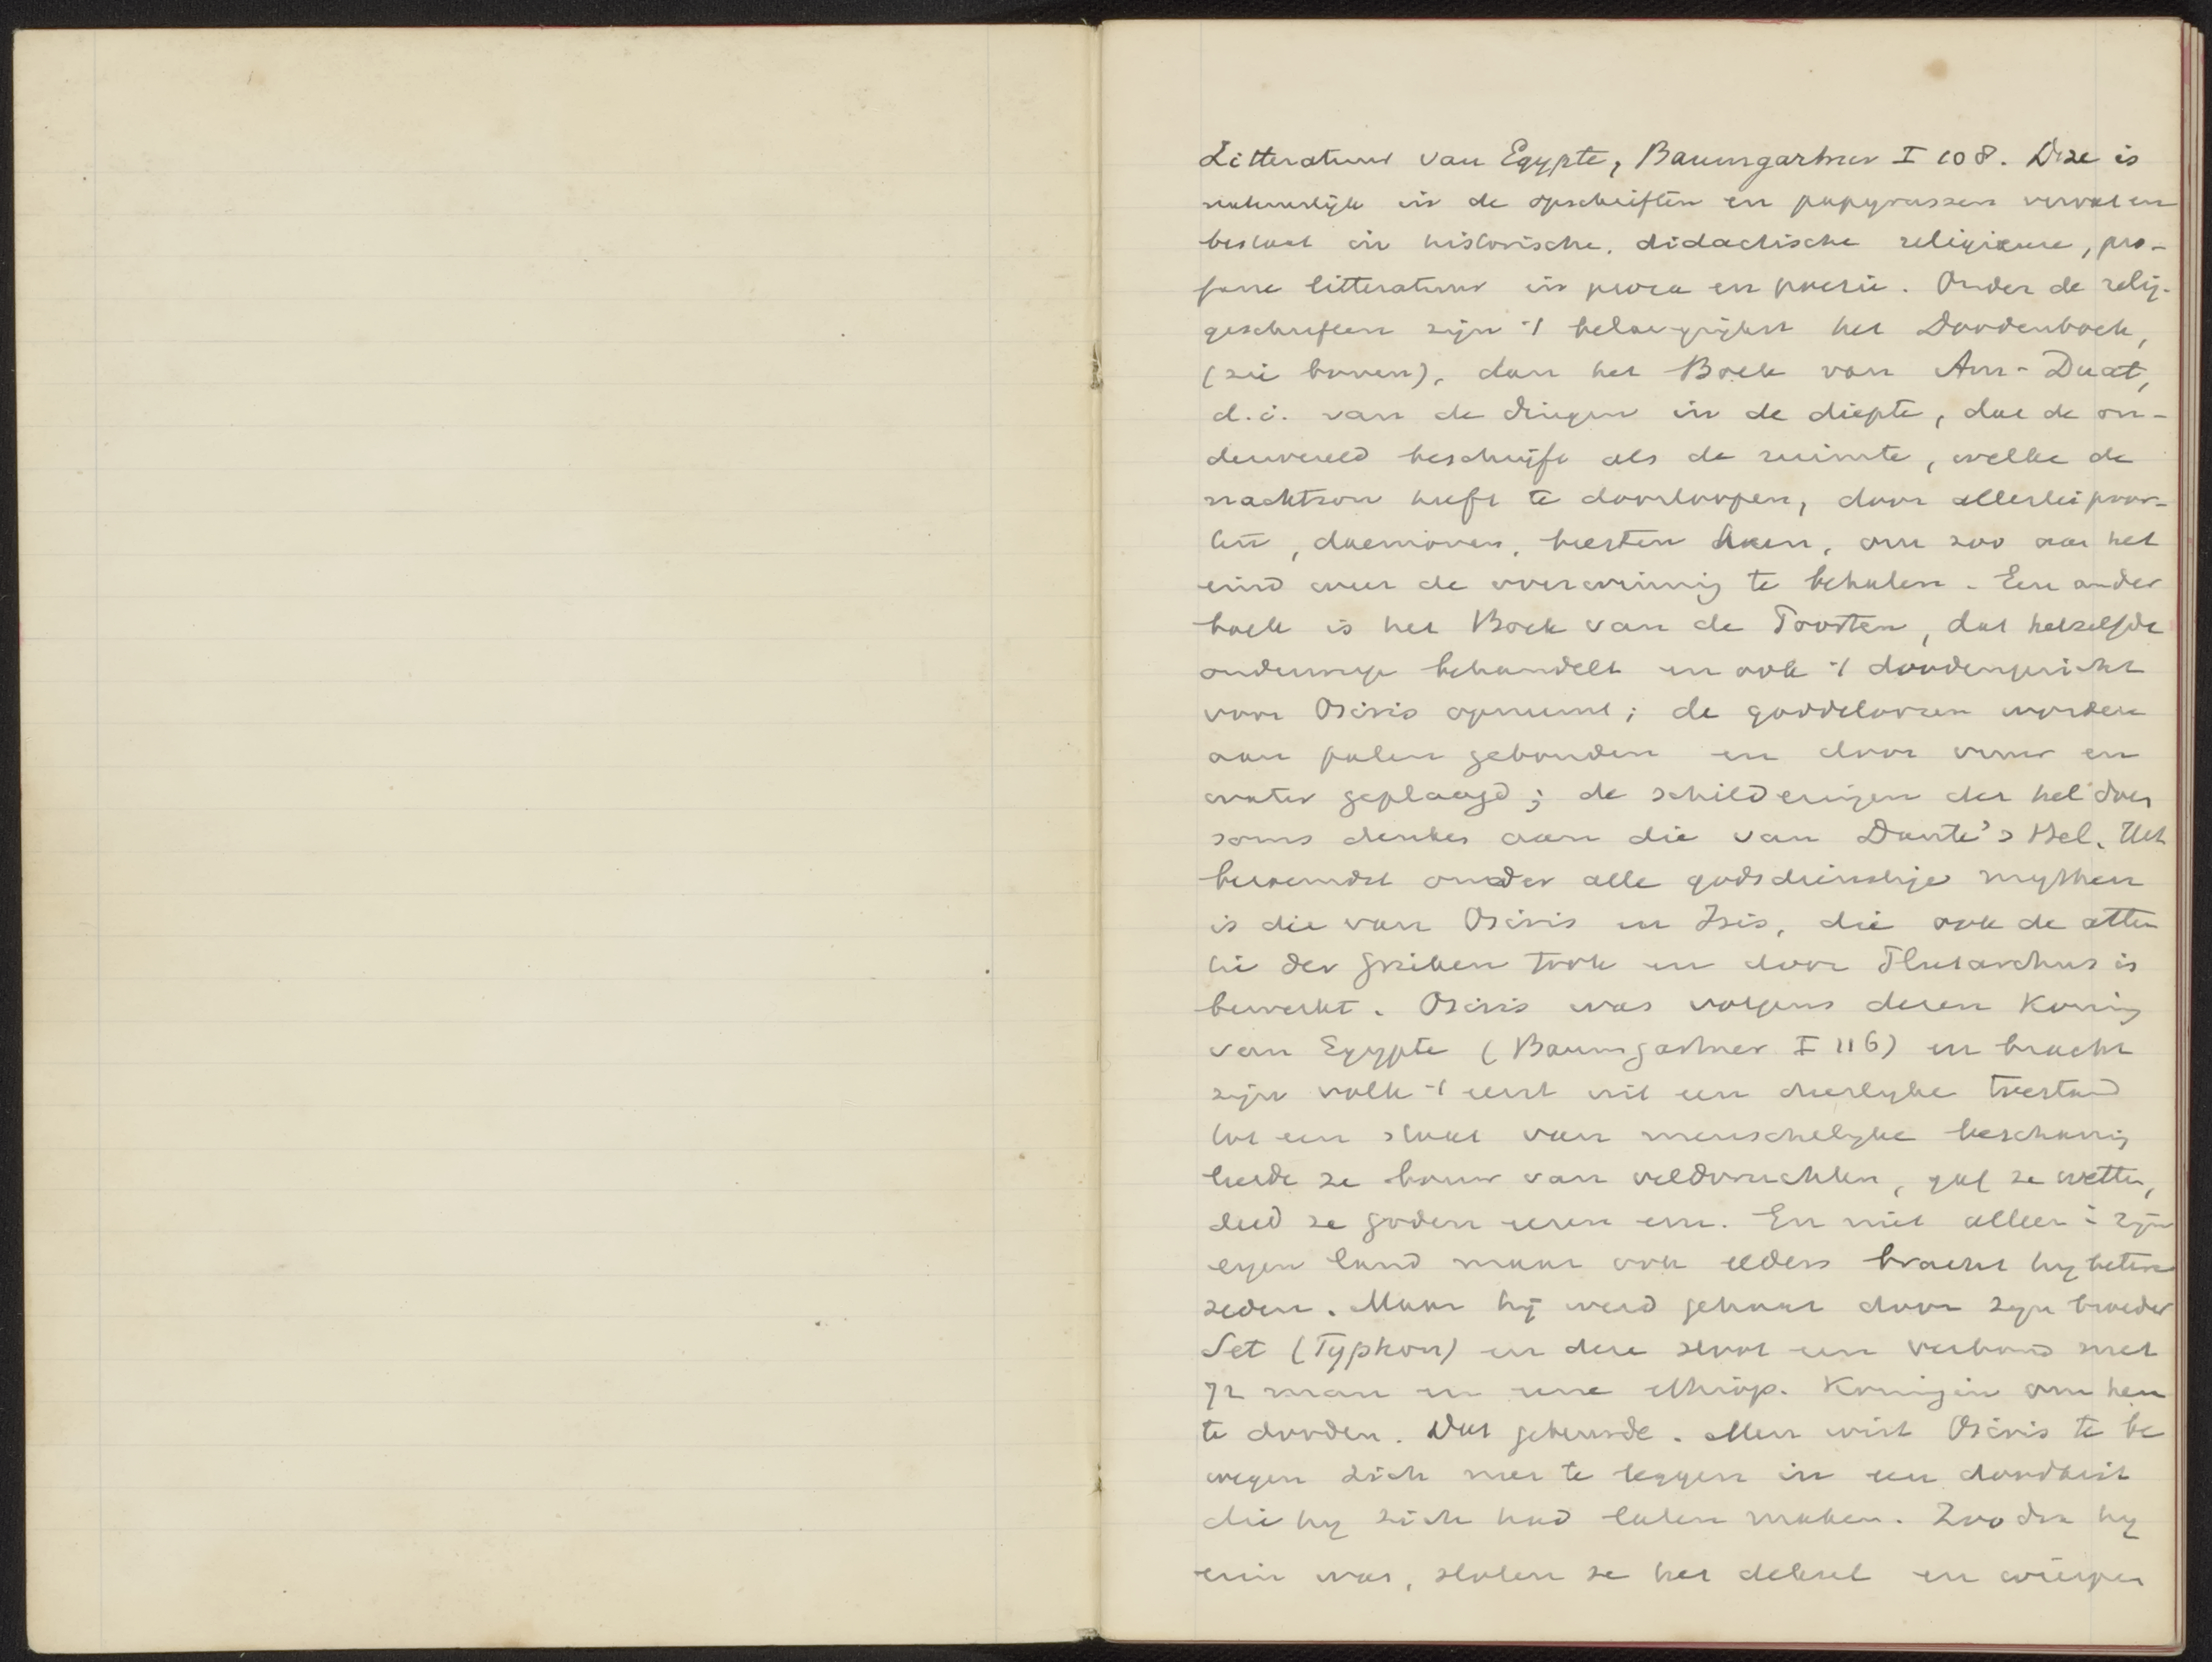 Litteratuur van Egypte, Baumgartner I 108. Deze is
natuurlijk in de opschriften en papyrussen vervat en
bestaat in historische, didactische religieuse, pro-
fane litteratuur in proza en poesie. Onder de relig.
geschriften zijn 't belangrijkst het Doodenboek,
(zie boven), dan het Boek van Am-Duat,
d.i. van de dingen in de diepte, dat de on-
derwereld beschrijft als de ruimte, welke de
nachtzon heeft te doorloopen, door allerlei poor-
ten, daemonen, beesten heen, om zoo aan het
eind weer de overwinnig te behalen. Een ander
boek is het Boek van de Poorten, dat hetzelfde
onderwerp behandelt en ook 't doodengericht
voor Osiris opneemt; de goddeloozen worden
aan palen gebonden en door vuur en
water geplaagd; de schilderingen der hel doen
soms denken aan die van Dante's Hel. Het
beroemdst onder alle godsdienstige mythen
is die van Osiris en Isis, die ook de atten
tie der Grieken trok en door Plutarchus is
bewerkt. Osiris was volgens dezen Koning
van Egypte (Baumgartner I 116) en bracht
zijn volk 't eerst uit een dierlijke toestand
tot een staat van menschelijke beschaving
leerde ze bouw van veldvruchten, gaf ze wetten,
deed ze goden eeren enz. En niet alleen i zijn
eigen land maar ook elders bracht hij betere
zeden. Maar hij werd gehaat door zijn broeder
Set (Typhon) en deze sloot een verbond met
72 man en eene ethiop. Koningin om hem
te dooden. Dat gebeurde. Men wist Osiris te be
wegen zich neer te leggen in een doodkist
die hij zich had laten maken. Zoodra hij
erin was, sloten ze het deksel en wierpen